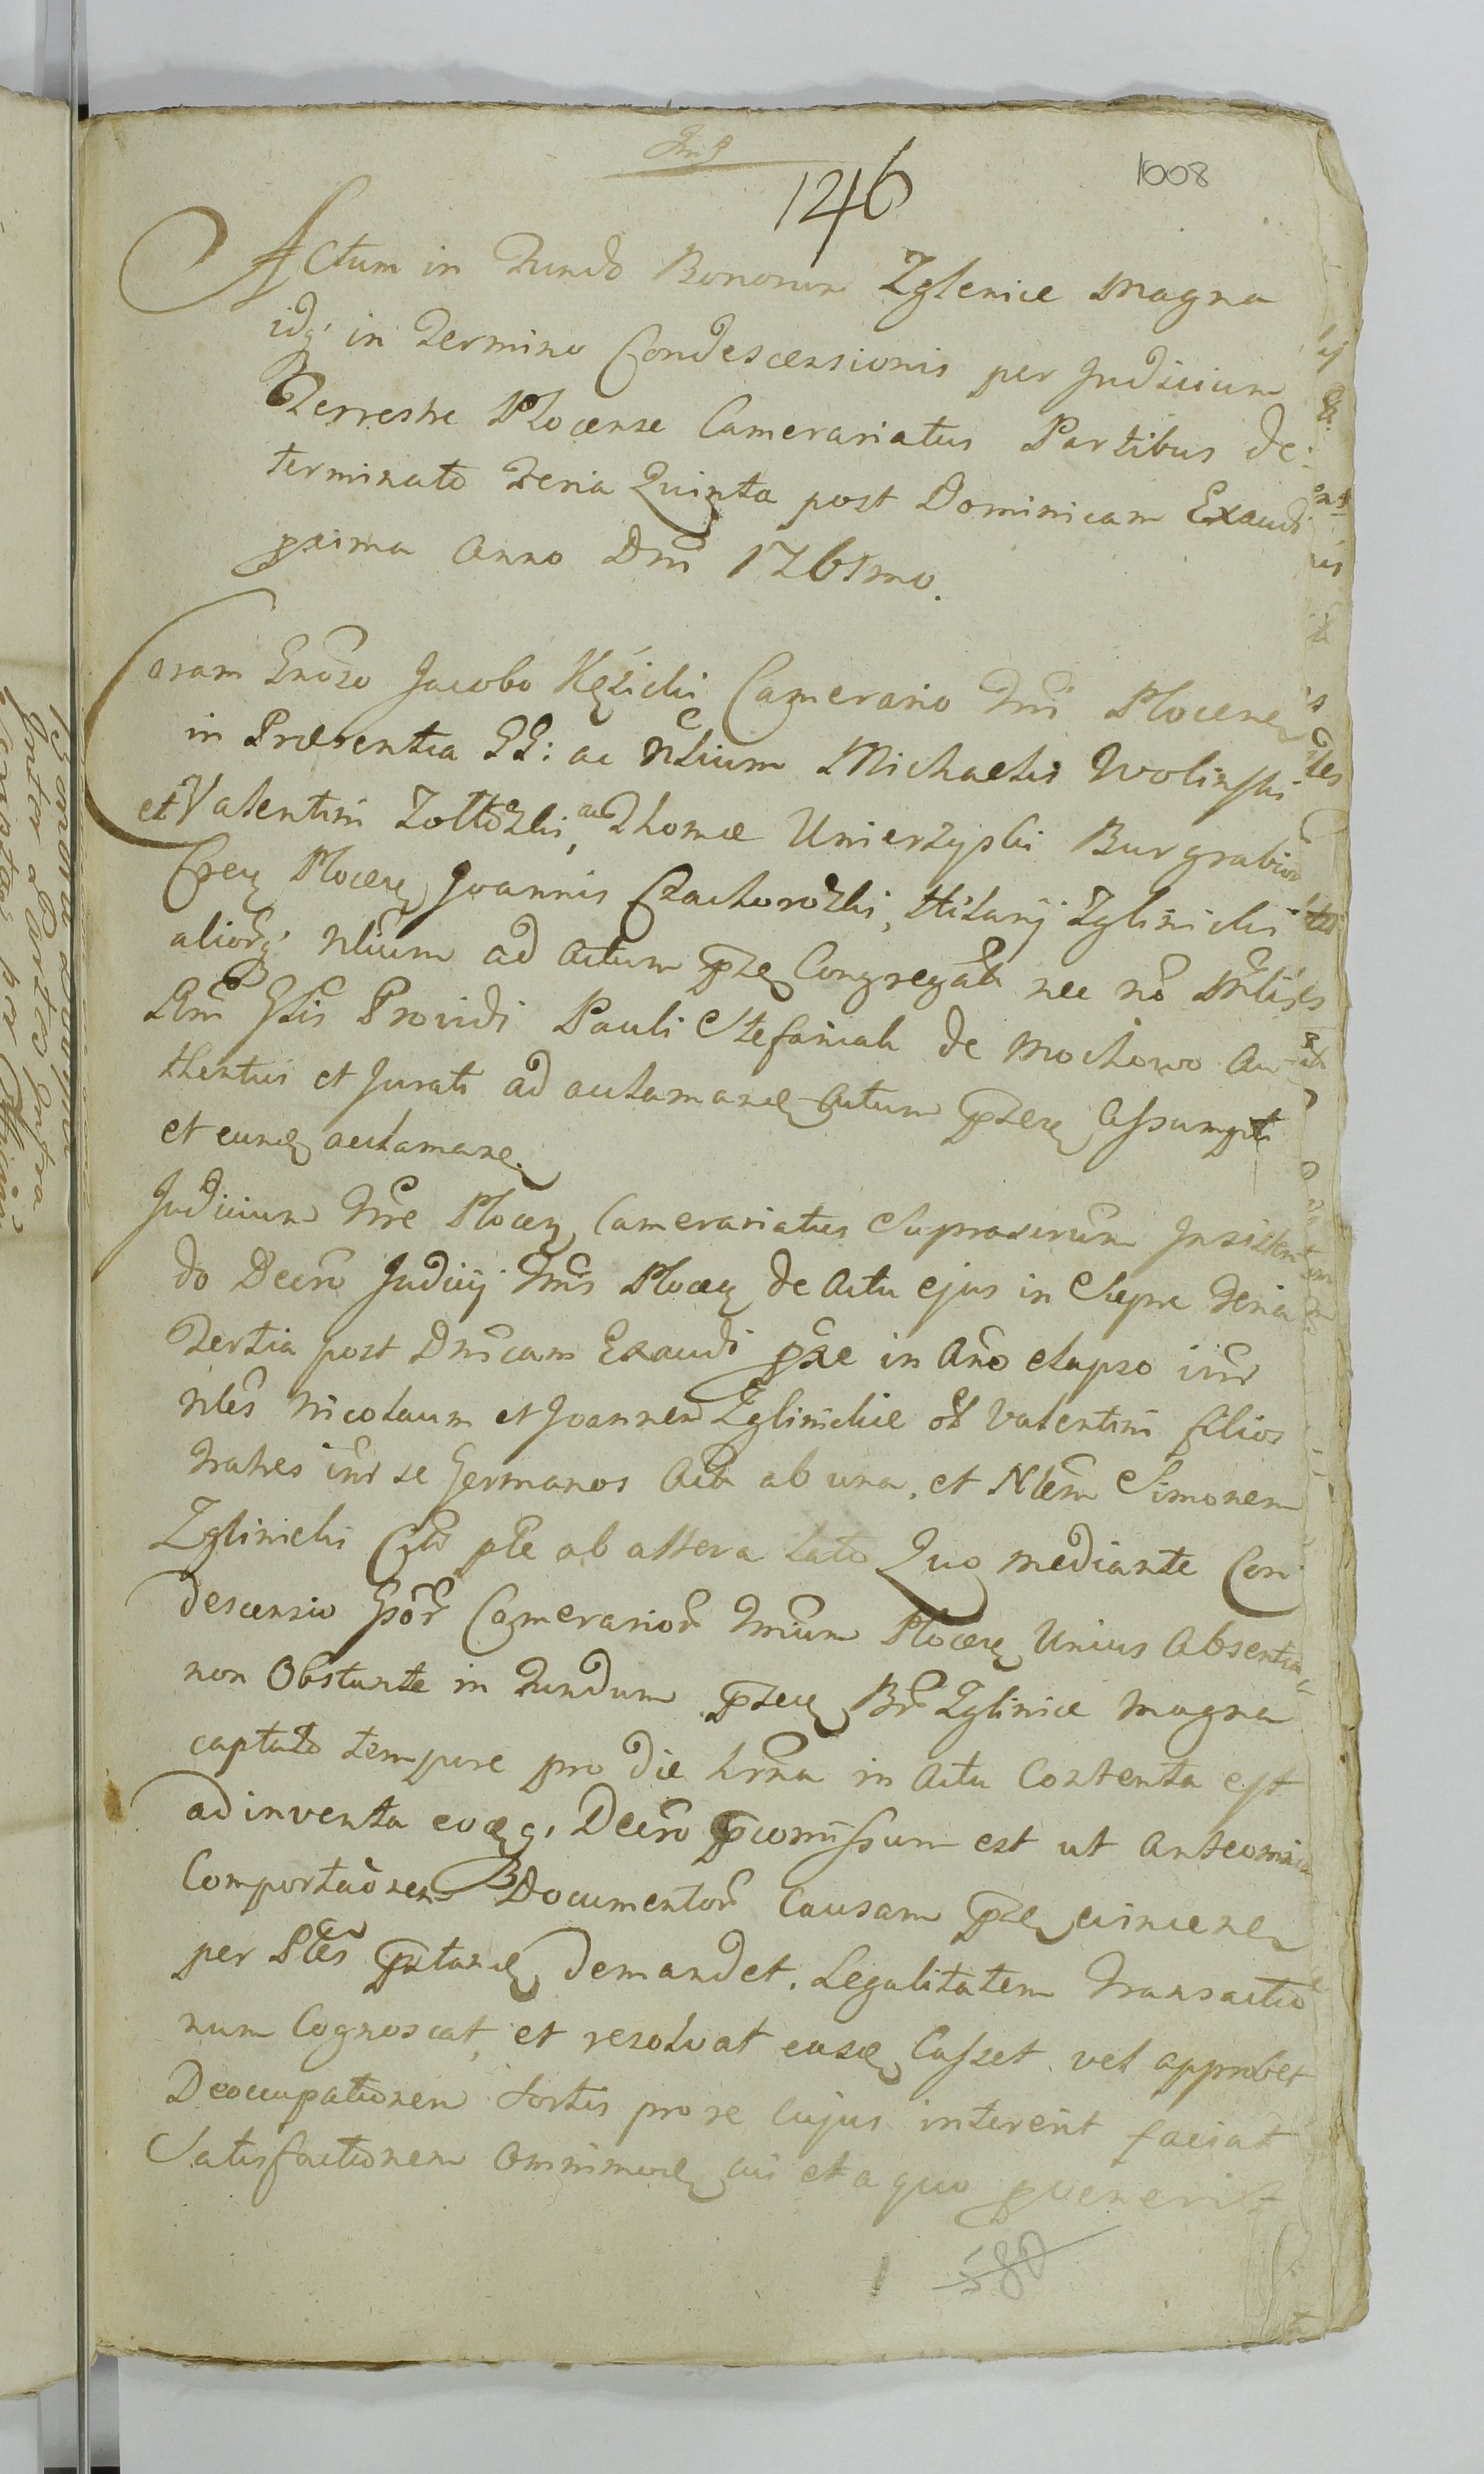 146
1008
Actum in Fundo Bonorum Zglenice Magna
idq; in Termino Condescensionis per Judicium
Terrestre Plocense Camerariatus Partibus de-
terminato Feria Quinta post Dominicam Exaudi
pxima Anno Dni 1761mo.
Coram Gnoso Jacobo Kęsicki Camerario Tri Plocen
in Præsentia GG: ac Nlium Michaelis Wolinski
et Valentini Zołtowski, ac Thomæ Umierzyski Burgrabior
Cpen Plocen Joannis Czachorowski, Hilarij Zglinicki
aliorq; Nlium ad Actum pze Congregat nec no Mlis
Lbri Glis Providi Pauli Stefaniak de Mochowo Au-
thentici et Jurati ad aclamand Actum pzen Assumpti
et eund aclamane.
Judicium Tre Plocen Camerariatus Suprascrum Insisten-
do Decro Judicij Tris Plocen de Actu ejus in Siepre Feria
Tertia post Dnicam Exaudi pxe in Ano elapso intr
Nles Nicolaum et Joannem Zglinickie ol Valentini filios
Fratres intr se Germanos Act ab una, et Nlem Simonem
Zglinicki Cto pte ab altera lato Quo mediante Con-
descensio Gsor Camerarior Trium Plocen Unius Absentia
non Obstante in Fundum pzen Br Zglinice Magna
captato tempore pro die hrna in Actu Contenta est
adinventa eoq; Decro pcomissum est ut Anteomnia
Comportaonem Documentor Causam pze cirncene
per Ptes pstand demandet. Legalitatem Transactio
num Cognoscat, et resolvat easd Casset vel approbet
Deoccupationem Sortis pro re cujus intererit faciat
Satisfactionem Omnimod cui et a quo pvenerit
580